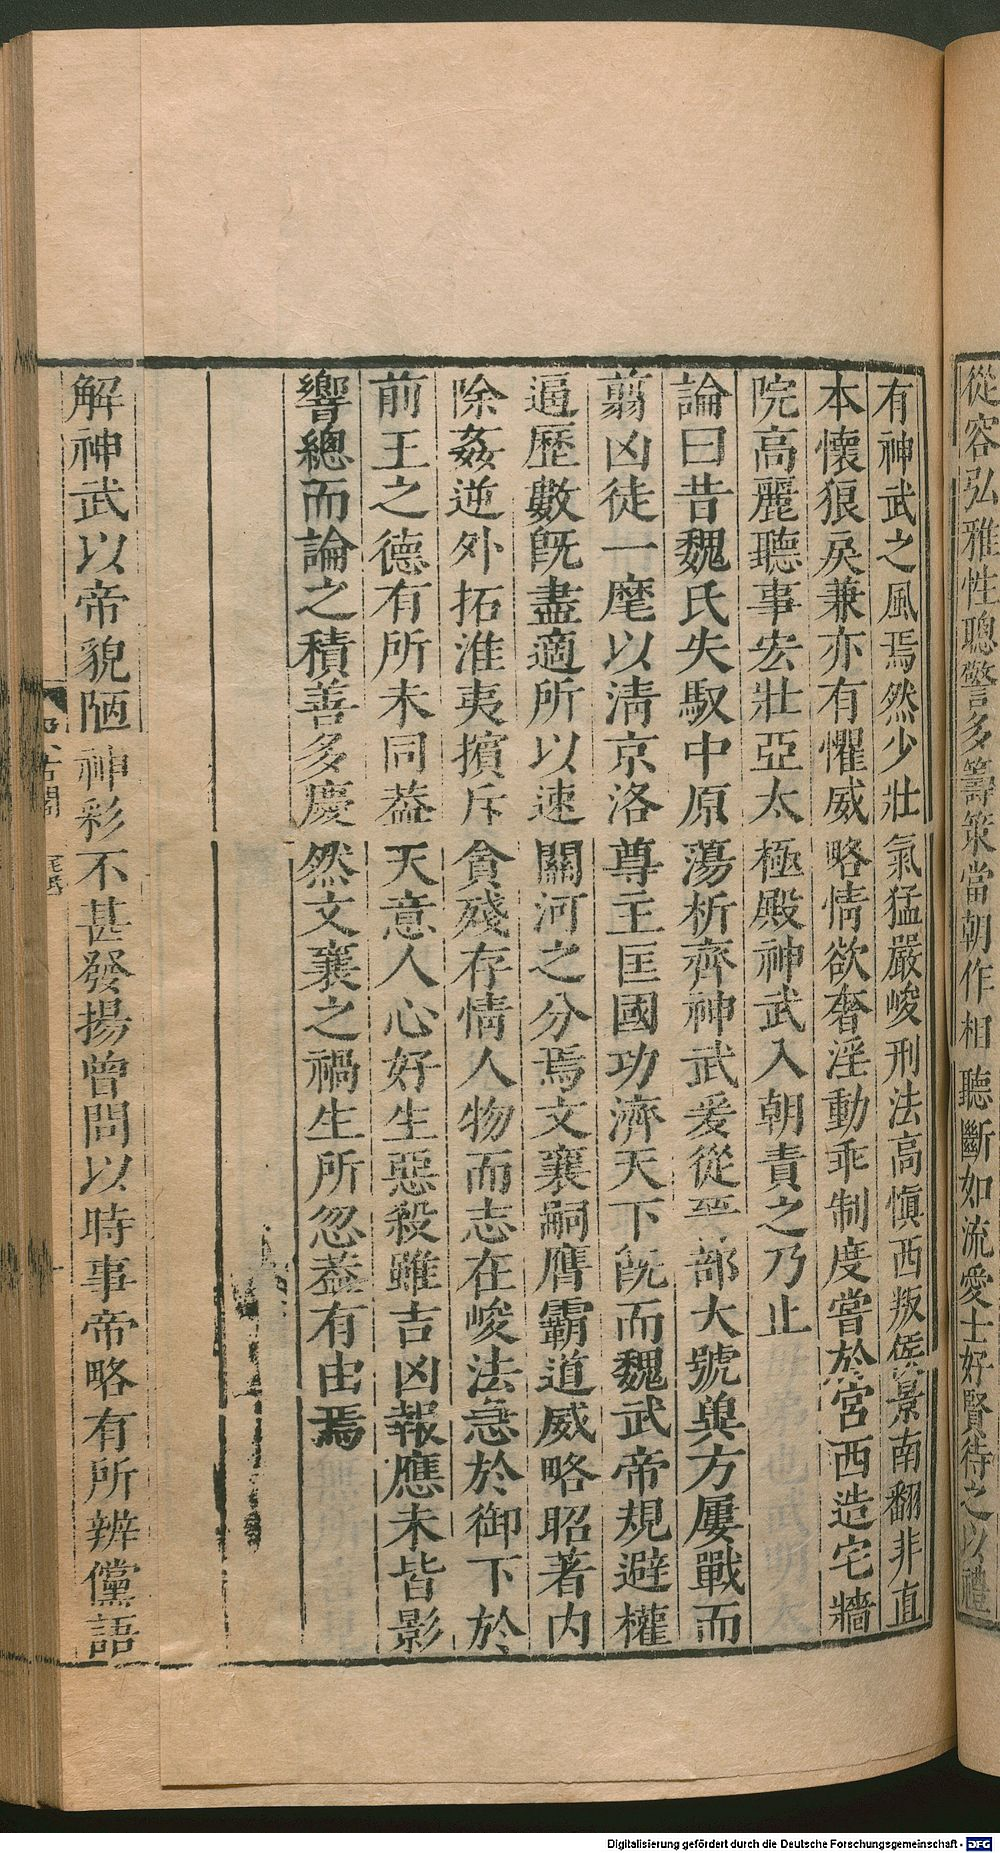 從容弘雅性聰警多籌策當朝作相聽斷如流愛士好賢待之以禮
有神武之風焉然少壯氣猛嚴峻刑法高慎西叛侯景南翻非直
本懷狼戾兼亦有懼威略情欲奢淫動乖制度嘗於宮西造宅牆
院高麗聽事宏壯亞太極殿神武入朝責之乃止
論曰昔魏氏失馭中原蕩析齊神武爰從 部大號與方屢戰而
翦凶徒一麾以清京洛尊主匡國功濟天下旣而魏武帝規避權
逼歷數旣盡適所以速關河之分焉文襄嗣膺霸道威略昭著内
除姦逆外拓淮夷擯斥貪殘存情人物而志在峻法急於御下於
前王之德有所未同葢天意人心好生惡殺雖吉凶報應未皆影
響總而論之積善多慶然文襄之禍生所忽葢有由焉
解神武以帝貌陋神彩不甚發揚曾問以時事帝略有所辨儻語
Digitalisierung gefördert durch die Deutsche Forschungsgemeinschaft - DFG